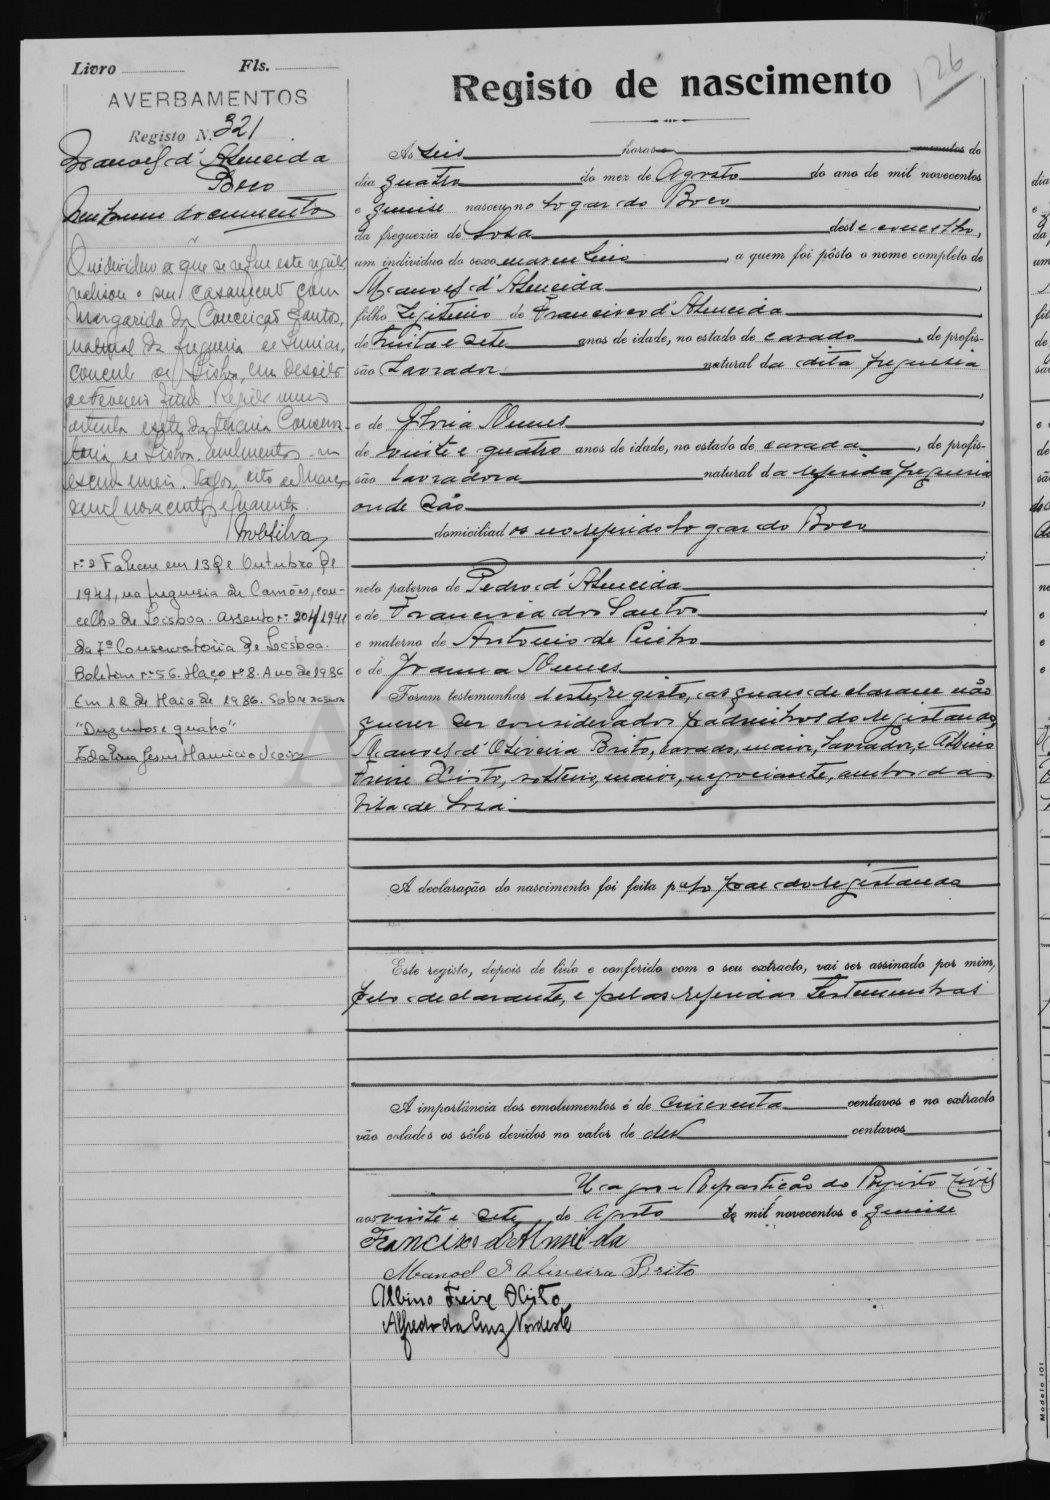 Livro Fls.
AVERBAMENTOS
Registo N. 321
Manoel d'Almeida
Boco
Nenhum documento
O individuo a que se refere este registo
realisou o seu casamento com
Margarida da Conceição Santos,
natural da freguesia de
concelho de Lisboa, em dezoito
de Fevereiro findo. Registo numero
oitenta e sete da terceira Conserva-
toria de Lisboa.
Vagos, oito de Março
de mil novecentos e quarenta.
nº 2 Faleceu em 13 de Outubro de
1941, na freguesia de Camões, con-
celho de Lisboa. Assento nº 204/1941
da 7ª Conservatória de Lisboa.
Boletim nº 56. Maço nº 8. Ano de 1986
Em 12 de Maio de 1986. Sobre rasura
"Duzentos e quatro"
126
Registo de nascimento
Ás seis horas minutos do
dia quatro do mez de Agosto do ano de mil novecentos
e quinse nasceu, no logar do Boco
da freguezia de Sosa deste concelho,
um individuo do sexo masculino, a quem foi pôsto o nome completo de
Manoel d'Almeida
filho legitimo de Francisco d'Almeida
de trinta e sete anos de idade, no estado de casado, de profis-
são Lavrador natural da dita freguesia
e de Gloria Nunes
de vinte e quatro anos de idade, no estado de casada, de profis-
são Lavradora natural da referida freguesia
onde são
domiciliados no referido logar do Boco
neto paterno de Pedro d'Almeida
e de Francisca dos Santos
e materno de Antonio de
e de Joanna Nunes
Foram testemunhas deste registo, as quaes declaram não
querer ser considerados padrinhos do registando,
Manoel d'Oliveira Brito, casado, maior, lavrador, e Albino
Freire Christo, solteiro, maior, negociante, ambos da
Vila de Sosa
A declaração do nascimento foi feita pelo pae do registando
Este registo, depois de lido e conferido com o seu extracto, vai ser assinado por mim,
pelo declarante, e pelas referidas testemunhas
A importância dos emolumentos é de cincoenta centavos e no extracto
vão colados os sêlos devidos no valor de dez centavos
Vagos e Repartição do Registo Civil
aos vinte e sete de Agosto de mil novecentos e quinse
Francisco d'Almeida
Manoel d'Oliveira Brito
Albino Freire Christo
Alfredo da Cruz Nordeste
Modelo 101